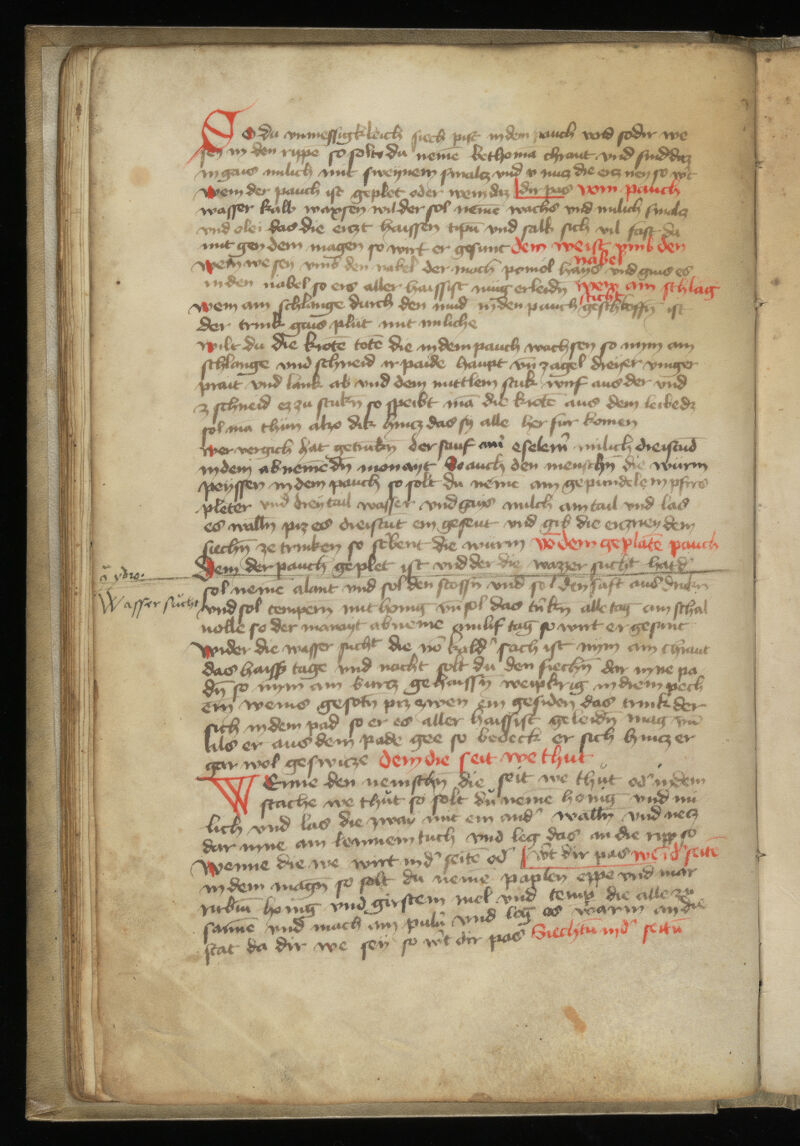 So du vnmessigkleich siech pist in dem pauch vnd so dir we
sey in den rippe so soltu du neme bethonia chraut vnd seud daz
in gaus milich mit sweynem smalcz vnd v nucz die erczney so wt
Wem der pauch ist geplet oder wem daz dir pas vom pauch
wasser kalb waxsen wil der sol neme wachs vnd milich smalcz
vnd olei das die erczt haissen vnd salb sich vil fast da
mit gen dem magen so wirt er gesunt dem we ist vmb den
nabel
Wem we sey vmb den nabel der mach pomol hays vnd gius es
in den nabel so ers aller haissist mug erleiden wem am schlag
sticht
Wem am schlange durch den mud in den pauch geschloffn ist
der trink gaus plut mit miliche
Wilt du die krote tote die in dem pauch wachsen so nym am
schlange vnd schneid ir paide haupt vn zagel dreyer vinger
prait vnd lank ab vnd dem mittlem stuk wirf aus der vnd
z schneid ez zu stukn so speibt ma die krote aus dem leibe dz
sol ma thun alzo dik hincz das sy alle her fur komen
Wer vergich hat getrukn der sauf ain eselein milich dreistud
in dem abnemedn monayt So auch den menschn die wurm
peyssen in dem pauch so solt du neme am gepundelem pfers
pleter vnd drey tail wasser vnd gays milch am tail vnd las
es walln piz es dreistut ein geseut vnd gib die erczney dem
siechn ze trinken so sterbent die wurm wem geplate pauch
Dem der pauch geplet ist vnd der die wazzer sucht hat d
Wasser sucht
sol neme alant vnd sol den stossn vnd sol den saft aus drukn
vnd sol tempern mit honig vn sol das trikn alle tag am schal
volle so der manayt abneme zwilif tag so wirt er gesunt
Wider die wasser sucht die vo kald sach ist nym am chraut
das haiss tage vnd nacht solt du den siechn dar inne pa
dn so nym am kurcz gehaissn in diem pech
ein weins gesotn piz zwen ein gesiden das trink der
sich in dem pad so er es aller haissist geleidn mag vn
als er aus dem pade gee so bedeck er sich hincz er
gar wol geswicze dem die seit we thut
Wenne den menschn die seit we thut od in dem
stache we thut so solt du neme honig vnd mi
lich vnd las die zway mit ein and walln vnd necz
dar inne am leinnem tuch vnd leg das an die ripp so
Wenne die we wirt ind seite od wt dir pas we id seite
in dem magn so solt du neme papeln eppe vnd mar
rubiu honig vnd girstein mel vnd temp die alle zu
same vnd mach am pulu vnd leg es warm an die
stat da dir we sey so wt dir pas Siechtu ind seitn